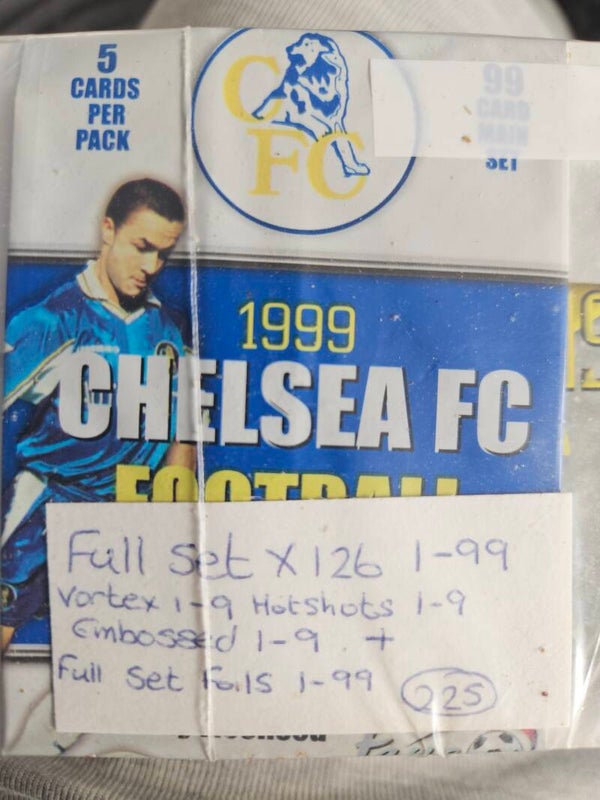 5
CARDS
PER
PACK
CFC
99
CARD
MAIN
SET
1999
CHELSEA FC
FOOTBALL
Full set x 126 1-99
Vortex 1-9 Hotshots 1-9
Embossed 1-9 +
Full Set Foils 1-99
225